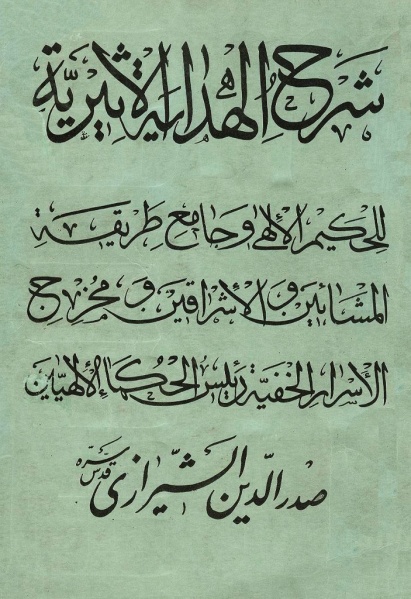 شرح الهداية الأثيرية
للحكيم الإلهي وجامع طريقة
المشائين والإشراقين ومخرج
الأسرار الخفية رئيس الحكماء الإلهيين
صدر الدين الشيرازي قدس سره